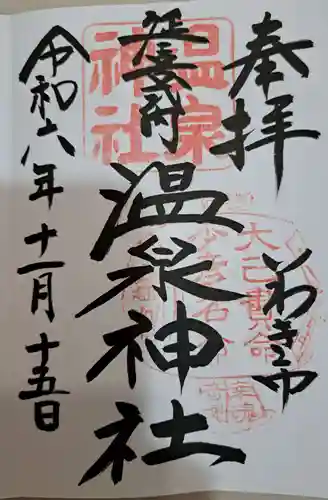 奉拝
いわき市
延喜式内
温泉神社
令和六年十一月十五日
温泉
神社
大己貴命
少彦名命